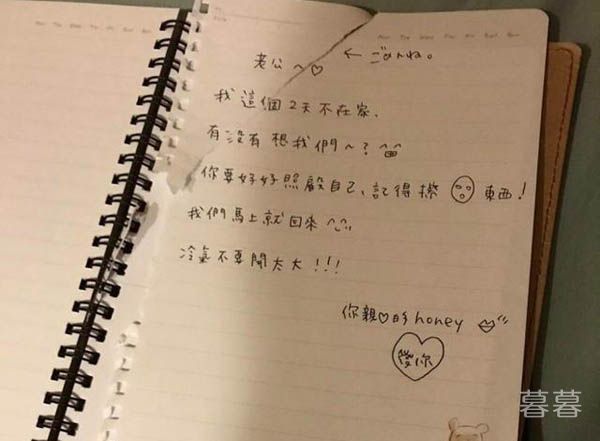 老公～♡ ← ごめんね。
我這個2天不在家、
有沒有想我們～？
你要好好照顧自己、記得擦 東西！
我們馬上就回來^^
冷氣不要開太大!!!
你親♡的honey
愛你
暮暮